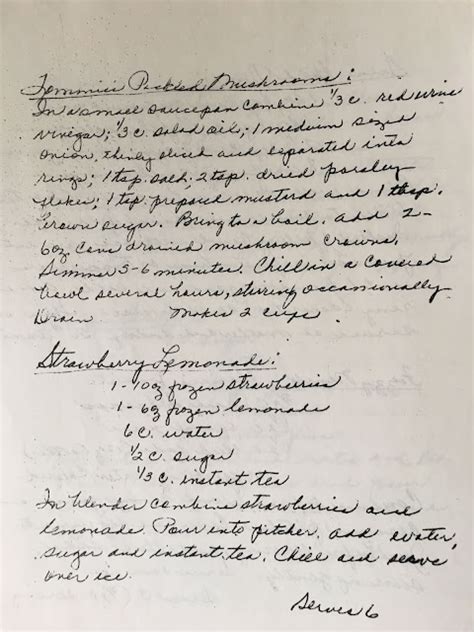 Tommie's Pickled Mushrooms:
In a small saucepan combine 1/3 c. red wine
vinegar; 1/3 c. salad oil; 1 medium sized
onion, thinly sliced and separated into
rings; 1 tsp. salt; 2 tsp. dried parsley
flakes; 1 tsp. prepared mustard and 1 tbsp.
brown sugar. Bring to a boil. Add 2-
6oz. cans drained mushroom crowns.
Simmer 5-6 minutes. Chill in a covered
bowl several hours, stirring occasionally.
Drain Makes 2 cups
Strawberry Lemonade:
1-10oz frozen strawberries
1-6oz frozen lemonade
6 c. water
1/2 c. sugar
1/3 c. instant tea
In blender combine strawberries and
lemonade. Pour into pitcher. Add water,
sugar and instant tea. Chill and serve
over ice.
Serves 6